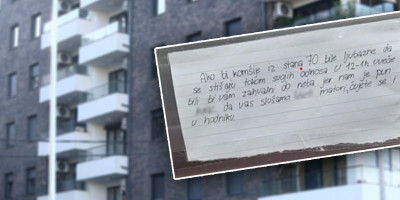 Ako bi komšije iz stana 70 bile ljubazne da
se stišaju tokom svojih odnosa u 12-1h uveče
bili bi vam zahvalni do neba jer nam je pun
da vas slušamo matori, čujete se i
u hodniku